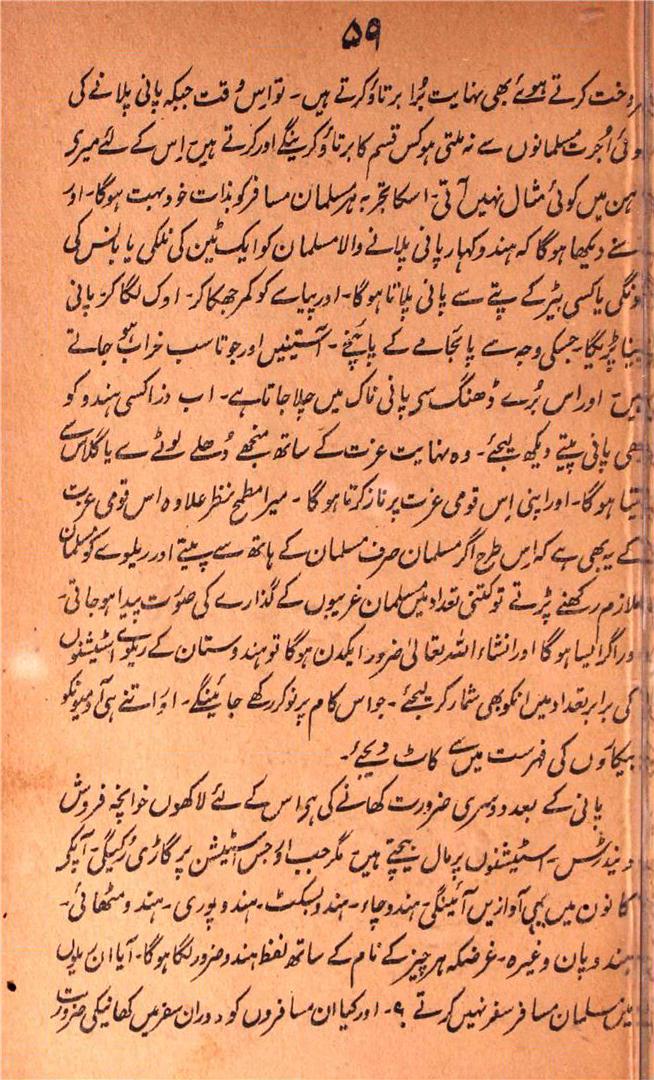 ۵۹
روخت کرتے ہوئے بھی نہایت بُرا برتاؤ کرتے ہیں۔ تو اس وقت جبکہ پانی پلانے کی
وئی اُجرت مسلمانوں سے نہ ملتی ہو کس قسم کا برتاؤ کرینگے اور کرتے ہیں اِس کے لئے میری
ہن میں کوئی مثال نہیں آتی۔ اسکا تجربہ ہر مسلمان مسافر کو بذات خود بہت ہوگا۔ اور
نے دیکھا ہوگا کہ ہندو کہار پانی پلانے والا مسلمان کو ایک ٹین کی نلکی یا بانس کی
ونگی یا کسی پیڑ کے پتے سے پانی پلاتا ہوگا۔ اور پیاسے کو کمر جھکا کر۔ اوک لگا کر پانی
پینا پڑیگا۔ جسکی وجہ سے پائجامے کے پائنچے۔ آستینیں اور جوتا سب خراب ہو جاتے
ہیں اور اس بُرے ڈھنگ سی پانی ناک میں چلا جاتا ہے۔ اب ذرا کسی ہندو کو
بھی پانی پیتے دیکھ لیجئے۔ وہ نہایت عزت کے ساتھ منجھے دُھلے لوٹے سے یا گلاس سے
پیتا ہوگا۔ اور اپنی اِس قومی عزت پر ناز کرتا ہوگا۔ میرا مطمح نظر علاوہ اس قومی عزت
کے یہ بھی ہے کہ اِس طرح اگر مسلمان صرف مسلمان کے ہاتھ سے پیتے اور ریلوے کو مسلمان
ملازم رکھنے پڑتے تو کتنی تعداد میں مسلمان غریبوں کے گذارے کی صورت پیدا ہو جاتی۔
ور اگر ایسا ہوگا اور انشاء اللہ تعالیٰ ضرور ایکدن ہوگا تو ہندوستان کے ریلوے اسٹیشنوں
کی برابر تعداد میں انکو بھی شمار کر لیجئے۔ جو اس کام پر نوکر رکھے جائینگے۔ اور اتنے ہی آدمیونکو
بیکاروں کی فہرست میں سے کاٹ دیجئے۔
پانی کے بعد دوسری ضرورت کھانے کی ہے اس کے لئے لاکھوں خوانچہ فروش
وینڈرس۔ اسٹیشنوں پر مال بیچتے ہیں مگر جب اور جس اسٹیشن پر گاڑی رُکیگی۔ آپکے
کانون میں یہی آوازیں آئینگی۔ ہندو چاء۔ ہندو بسکٹ۔ ہندو پوری۔ ہندو مٹھائی۔
ہندو پان وغیرہ۔ غرضکہ ہر چیز کے نام کے ساتھ لفظ ہندو ضرور لگا ہوگا۔ آیا ان ریلوں
میں مسلمان مسافر سفر نہیں کرتے ؟۔ اور کیا ان مسافروں کو دوران سفر میں کھانیکی ضرورت